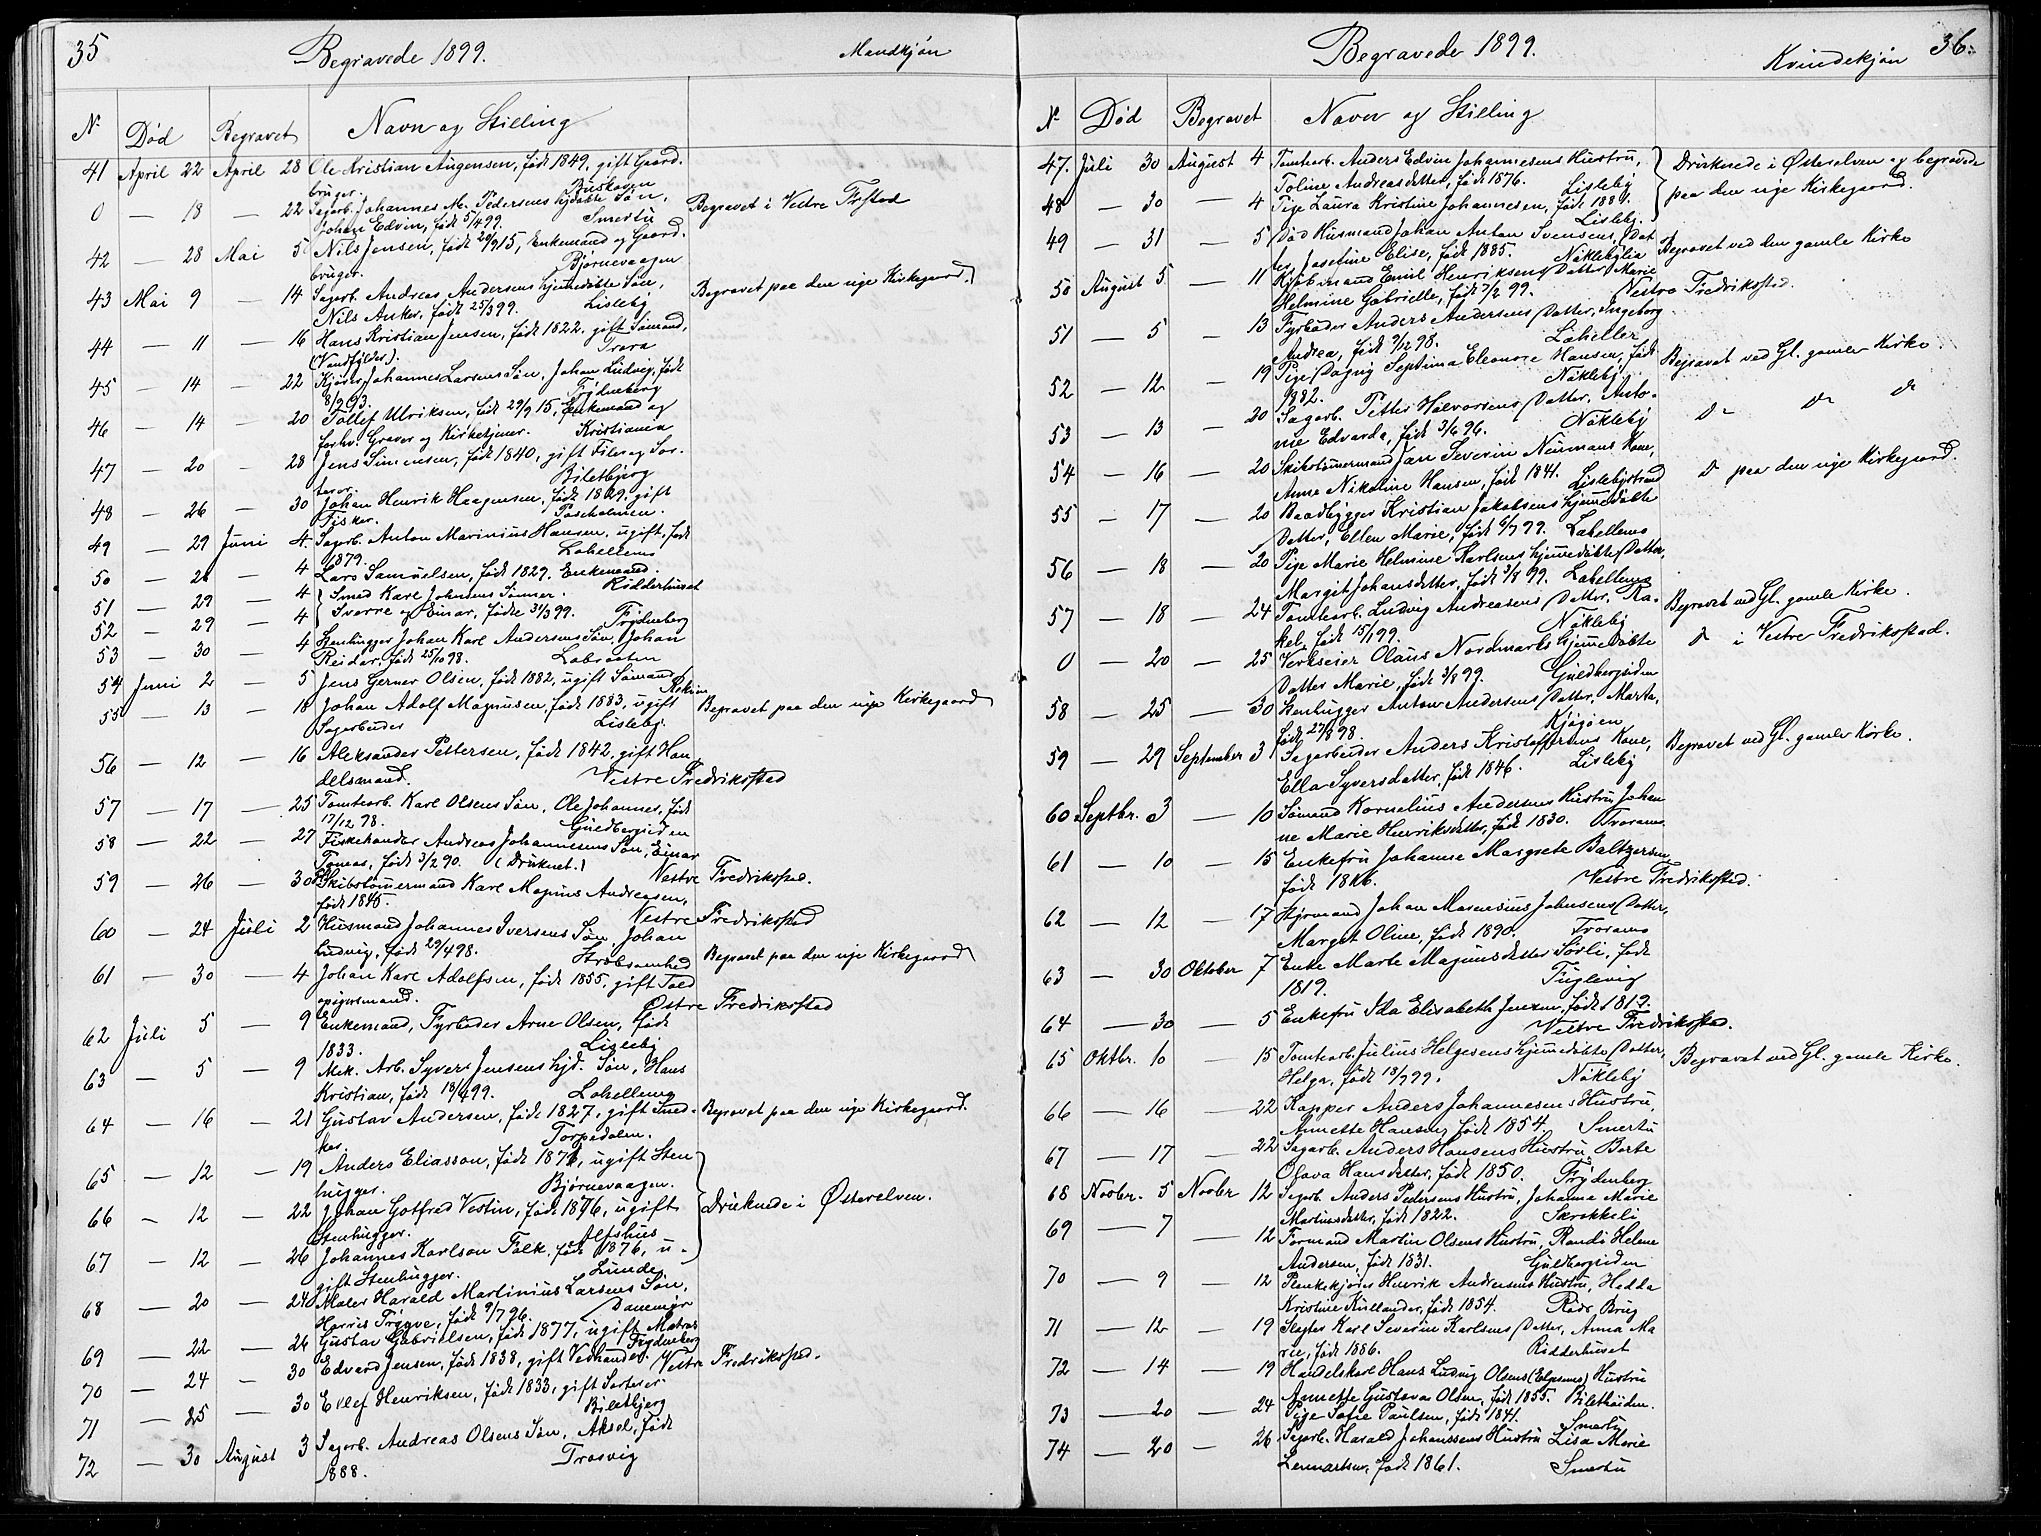 35
Begravede 1899.
Mandkjøn
N
Død
Begravet
Navn og Stilling
41 April 22 April 28 Ole Kristian Augensen, født 1849, gift Gaard-
bruger. Buskogen
0 — 18 — 22 Sagarb. Johannes M. Pedersens hjdøbte Søn,
Johan Edvin, født 5/4 99. Smertu
Begravet i Vestre Frstad
42 — 28 Mai 5 Nils Jensen, født 20/9 15, Enkemand og Gaard-
bruger. Bjørnevaagen
43 Mai 9 — 14 Sagarb. Andreas Andersens hjemedøbte Søn,
Nils Anker, født 25/3 99. Lisleby
Begravet paa den nye Kirkegaard.
44 — 11 — 16 Hans Kristian Jensen, født 1822. gift Sømand,
(Vandfylder). Trara
45 — 14 — 22 Kjører Johannes Larsens Søn, Johan Ludvig, født
8/9 93. Frydenberg
46 — 14 20 Tollef Ulriksen, født 29/9 15, Enkemand og
forhv. Graver og Kirketjener. Kristiania
47 — 20 — 28 Jens Simensen, født 1840, gift Filer og Sor-
terer. Biletbjerg
48 — 26 — 30 Johan Henrik Haagensen, født 1829. gift
Fisker. Paseholmen.
49 — 29 Juni 4. Sagarb. Anton Marinius Hansen, ugift, født
1879. Lahellemo
50 — 26 — 4 Lars Samuelsen, født 1829. Enkemand.
Ridderhuset
51 — 29 — 4 Smed Karl Johnsens Sønner.
52 — 29 — 4 Sverre og Einar, fødte 31/3 99. Frydenberg
53 — 30 — 4 Stenhugger Johan Karl Andersens Søn, Johan
Reidar, født 25/10 98. Labraaten
54 Juni 2 — 5 Jens Gerner Olsen, født 1882, ugift Sømand
55 — 13 — 18 Johan Adolf Magnusen, født 1883, ugift
Sagarbeider Lisleby.
Begravet paa den nye Kirkegaard
56 — 12 — 16 Aleksander Pettersen, født 1842, gift Han
delsmand. Vestre Fredriksstad
57 — 17 — 25 Tomtearb. Karl Olsens Søn, Ole Johannes, født
17/12 98. Guldbergsiden
58 — 22 — 27 Fiskehandler Andreas Johannessens Søn, Einar
Tomas, født 3/2 90. (Druknet.) Vestre Fredriksstad.
59 — 26 — 30 Skibstømmermand Karl Magnus Andreasen,
født 1845. Vestre Fredriksstad
60 — 24 Juli 2 Husmand Johannes Iversens Søn, Johan
Ludvig, født 29/4 98. Stræbsomhed
Begravet paa den nye Kirkegaard
61 — 30 — 4 Johan Karl Adolfsen, født 1855, gift Told
opsynsmand. Østre Fredriksstad
62 Juli 5 — 9 Enkemand, Fyrbøder Arne Olsen, født
1833. Lisleby
63 — 5 — 9 Mek. Arb. Syver Jensens hjd. Søn, Hans
Kristian, født 18/4 99. Lahellemo
64 — 16 — 21 Gustav Andersen, født 1827, gift Sned-
ker. Torpedalen.
Begravet paa den nye Kirkegaard.
65 — 12 — 19 Anders Eliasson, født 1876, ugift Sten
hugger. Bjørnevaagen.
66 — 12 — 22 Johan Gotfred Vestin, født 1876, ugift
Stenhugger. Alfshus
Druknede i Østerelven.
67 — 12 — 26 Johannes Karlson Falk, født 1876, u-
gift Stenhugger. Lunde
68 — 20 — 24 Maler Harald Martinius Larsens Søn,
Harris Trygve, født 9/7 96. Danemør
69 — 22 — 26 Gustav Gabrielsen, født 1877, ugift Matros
Frydenberg
70 — 24 — 30 Edvard Jensen, født 1838, gift Vedhandler. Vestre Fredriksstad.
71 — 25 — 30 Ellef Henriksen, født 1833, gift Sorterer
Biletbjerg
72 — 30 August 3 Sagarb. Andreas Olsens Søn, Aksel, født
1888. Trosvig
Begravede 1899.
Kvindekjøn
36.
N
Død
Begravet
Navn og Stilling
47. Juli 30 August 4 Tomtearb. Anders Edvin Johannesens Hustru,
Toline Andreasdatter, født 1876. Lisleby
48 — 30 — 4 Pige Laura Kristine Johannesen, født 1881.
Lisleby.
Druknede i Østerelven og begravede
paa den nye Kirkegaard.
49 — 31 — 5 Død Husmand Johan Anton Svensens Dat
ter, Josefine Elise, født 1885. Nøkleblia
Begravet ved den gamle Kirke
50 August 5 — 11 Kjøbmand Emil Henriksens Datter Marie
Helmine Gabrielle, født 7/2 99. Vestre Fredriksstad.
51 — 5 — 13 Fyrbøder Anders Andersens Datter, Ingeborg
Andrea, født 9/12 98. Laheller
52 — 12 — 19 Pige Dagny Septima Eleonore Hansen, født
1882. Nøkleby
Begravet ved Gl. gamle Kirke.
53 — 13 — 20 Sagarb. Petter Halvorsens Datter, Anto-
nie Edvarda, født 3/6 96. Nøkleby
D D D
54 — 16 — 20 Skibstømmermand Jan Severin Neumans Kone,
Anne Nikoline Hansen, født 1841. Lislebystrand
D paa den nye Kirkegaard.
55 — 17 — 20 Baadbygger Kristian Jakobsens hjemedøbte
Datter, Ellen Marie, født 6/7 99. Lahellemo
56 — 18 — 20 Pige Marie Helmine Karlsens hjemedøbte Datter,
Margit Johansdatter, født 3/8 99. Lahellemo
57 — 18 — 24 Tomtearb. Ludvig Andreasens Datter, Ra-
kel, født 15/1 99. Nøkleby
Begravet ved Gl. gamle Kirke.
0 — 20 — 25 Verkseier Olaus Nordmarks hjemedøbte
Datter Marie, født 3/8 99. Guldbergsiden
D i Vestre Fredriksstad.
58 — 25 — 30 Stenhugger Anton Andersens Datter, Marta,
født 27/8 98. Kjøgøen
59 — 29 September 3 Sagarbeider Anders Kristoffersens Kone,
Ella Syversdatter, født 1846. Lisleby
Begravet ved Gl. gamle Kirke.
60 Septbr. 3 — 10 Sømand Kornelius Andersens Hustru Johan
ne Marie Henriksdatter, født 1830. Traramo
61 — 10 — 15 Enkefru Johanne Margrete Baltzersen
født 1816. Vestre Fredriksstad.
62 — 12 — 17 Styrmand Johan Marensius Johnsens Datter,
Margit Oline, født 1890. Traramo
63 — 30 Oktober 7 Enke Marte Magnusdatter Sørli, født
1819. Fuglevig
64 — 30 — 5 Enkefru Ida Elisabeth Jensen, født 1819.
Vestre Fredriksstad.
65 Oktbr. 10 — 15 Tomtearb. Julius Helgesens hjemedøbte Datter,
Helga, født 18/9 99. Nøkleby
Begravet ved Gl. gamle Kirke.
66 — 16 — 22 Kapper Anders Johannesens Hustru,
Annette Hansen, født 1854. Smertu
67 — 17 — 22 Sagarb. Anders Hansens Hustru, Berte
Olava Hansdatter, født 1850. Frydenberg
68 Novbr. 5 Novbr 12 Sagarb. Anders Pedersens Hustru, Johanna Marie
Martinsdatter, født 1822. Skrokkeli
69 — 7 — 12 Formand Martin Olsens Hustru, Randi Helene
Andersen, født 1831. Guldbergsiden
70 — 9 — 12 Plankekjører Henrik Andersens Hustru, Hedda
Kristine Kullander, født 1854. Røds Brug
71 — 12 — 19 Slagter Karl Severin Karlsens Datter, Anna Ma
rie, født 1886. Ridderhuset
72 — 14 — 19 Handelskarl Hans Ludvig Olsens Hustru
Annette Gustava Olsen, født 1855. Bilethøiden.
73 — 20 — 24 Pige Sofie Paulsen, født 1841.
Smertu
74 — 20 — 26 Sagarb. Harald Johanssens Hustru Lisa Marie
Lennartsen, født 1861. Smertu